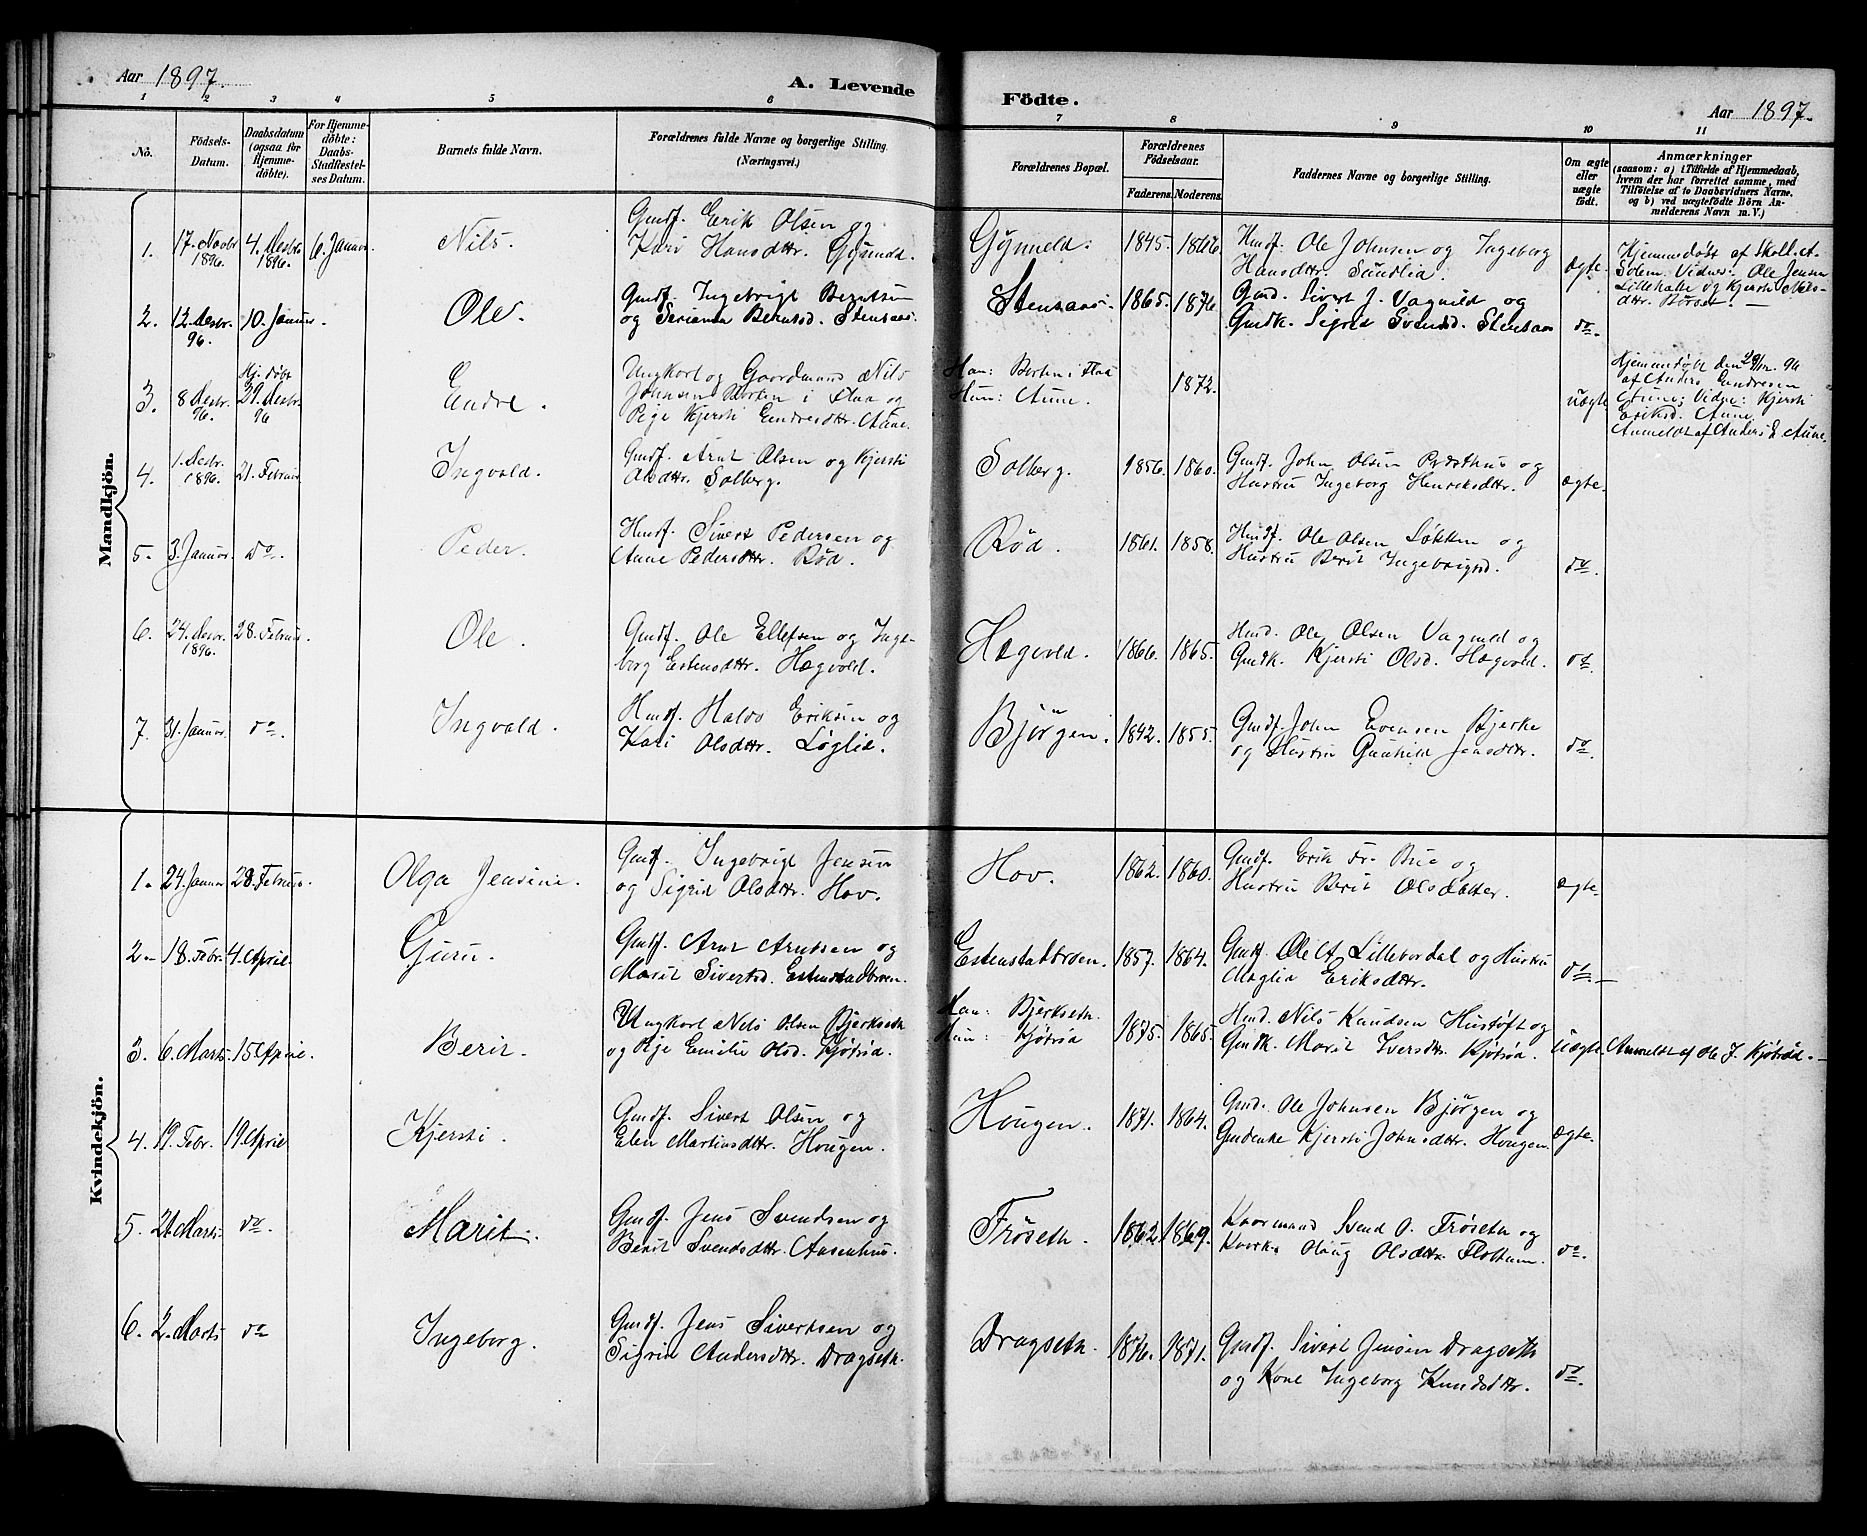 Aar 1897.
A. Levende
Födte.
Aar 1897.
1 2 3 4 5 6 7 8 9 10 11
No.
Födsels-
Datum.
Daabsdatum
(ogsaa for
Hjemme-
döbte).
For Hjemme-
döbte:
Daabs-
Stadfestel-
ses Datum.
Barnets fulde Navn.
Forældrenes fulde Navne og borgerlige Stilling
(Næringsvei.)
Forældrenes Bopæl.
Forældrenes
Födselsaar.
Faderens. Moderens.
Faddernes Navne og borgerlige Stilling.
Om ægte
eller
uægte
födt.
Anmærkninger
(saasom: a) i Tilfælde af Hjemmedaab,
hvem der har forrettet samme, med
Tilföielse af to Daabsvidners Navne.
og b) ved uægtefödte Börn An-
melderens Navn m. V.)
Mandkjön.
1. 17. Novbr 1896. 4. Desbr. 1896. 6. Januar.
Nils.
Gmdf. Erik Olsen og
Kari Hansdttr. Gynneld.
Gynneld.
1845. 1866.
Hmdf. Ole Johnsen og Ingeborg
Hansdttr. Sundlia.
ægte.
Hjemmedøbt af Skoll. A.
Solem. Vidner: Ole Jensen
Lillehale og Kjersti Nils-
dttr. Borset. —
2. 12. Desbr. 96. 10. Januar.
Ole.
Gmdf. Ingebrigt Berntsen
og Serianna Berntsd. Stensaas.
Stensaas.
1865. 1876.
Gmd. Sivert J. Vagnild og
Gmdk. Sigrid Svendsd. Stensaas
do.
3. 8 Desbr. 96. Hj. døbt 29. Desbr. 96
Endre.
Ungkarl og Gaardmand Nils
Johnsen Borten i Flaa og
Pige Kjersti Endresdttr. Aune.
Han: Borten i Flaa
Hun: Aune.
1872.
uægte
Hjemmedøbt den 29/12 96
af Anders Endresen
Aune; Vidne: Kjersti
Eriksd. Aune.
Anmeldt af Anders E. Aune.
4. 1. Desbr. 1896. 21. Februar.
Ingvald.
Gmdf. Arnt Olsen og Kjersti
Olsdttr. Solberg.
Solberg.
1856. 1860.
Gmdf. John Olsen Præsthus og
Hustru Ingeborg Henriksdttr.
ægte.
5. 3. Januar. do.
Peder.
Hmdf. Sivert Pedersen og
Anne Pedersdttr. Rød.
Rød.
1861. 1858.
Husf. Ole Olsen Løkken og
Hustru Berit Ingebrigtsd.
do.
6. 24. Desbr. 1896. 28. Februar.
Ole.
Gmdf. Ole Ellefsen og Inge-
borg Estensdttr. Hægvold.
Hægvold.
1866. 1865.
Hmd. Ole Olsen Vagnild og
Gmdk. Kjersti Olsd. Hægvold.
do.
7. 31. Januar. do.
Ingvald.
Hmdf. Haldo Eriksen og
Kari Olsdttr. Løglie.
Bjørgen.
1842. 1855.
Gmdf. John Evensen Bjerke
og Hustru Gunhild Jensdttr.
do.
Kvindekjön.
1. 24. Januar 28. Februar.
Olga Jensine.
Gmdf. Ingebrigt Jensen
og Sigrid Olsdttr. Hov.
Hov.
1862. 1860.
Gmdf. Erik Fr. Bue og
Hustru Berit Olsdatter.
ægte.
2. 18. Febr. 4. April.
Guru.
Gmdf. Arnt Arntsen og
Marit Sivertsd. Estenstadbroen.
Estenstadbroen.
1857. 1864.
Gmdf. Ole A. Lillebordal og Hustru
Maglia Eriksdttr.
do. —
3. 6. Marts. 15 April.
Berit.
Ungkarl Nils Olsen Bjerkseth
og Pige Emelie Olsd. Kjøtrød.
Han: Bjerkseth.
Hun: Kjøtrød
1875. 1865.
Hmd. Nils Knudsen Hustøft og
Gmdk. Marit Iversdttr. Kjøtrød.
Uægte
Anmeldt af Ole J. Kjøtrød. —
4. 19. Febr. 19. April
Kjersti.
Gmdf. Sivert Olsen og
Elen Martinsdttr. Hougen.
Hougen.
1871. 1864.
Gmd. Ole Johnsen Bjørgen og
Gmdenke Kjersti Johnsdttr. Hougen.
ægte.
5. 21. Marts. do.
Marit.
Gmdf. Jens Svendsen og
Berit Svendsdttr. Aasenhus.
Frøseth.
1862. 1869.
Kaarmand Svend O. Frøseth og
Kaark. Olaug Olsdttr Flottum.
do.
6. 2. Marts do
Ingeborg.
Gmdf. Jens Sivertsen og
Sigrid Andersdttr. Dragseth.
Dragseth.
1876. 1871.
Gmdf. Sivert Jensen Dragseth
og Kone Ingeborg Knudsdttr.
do.